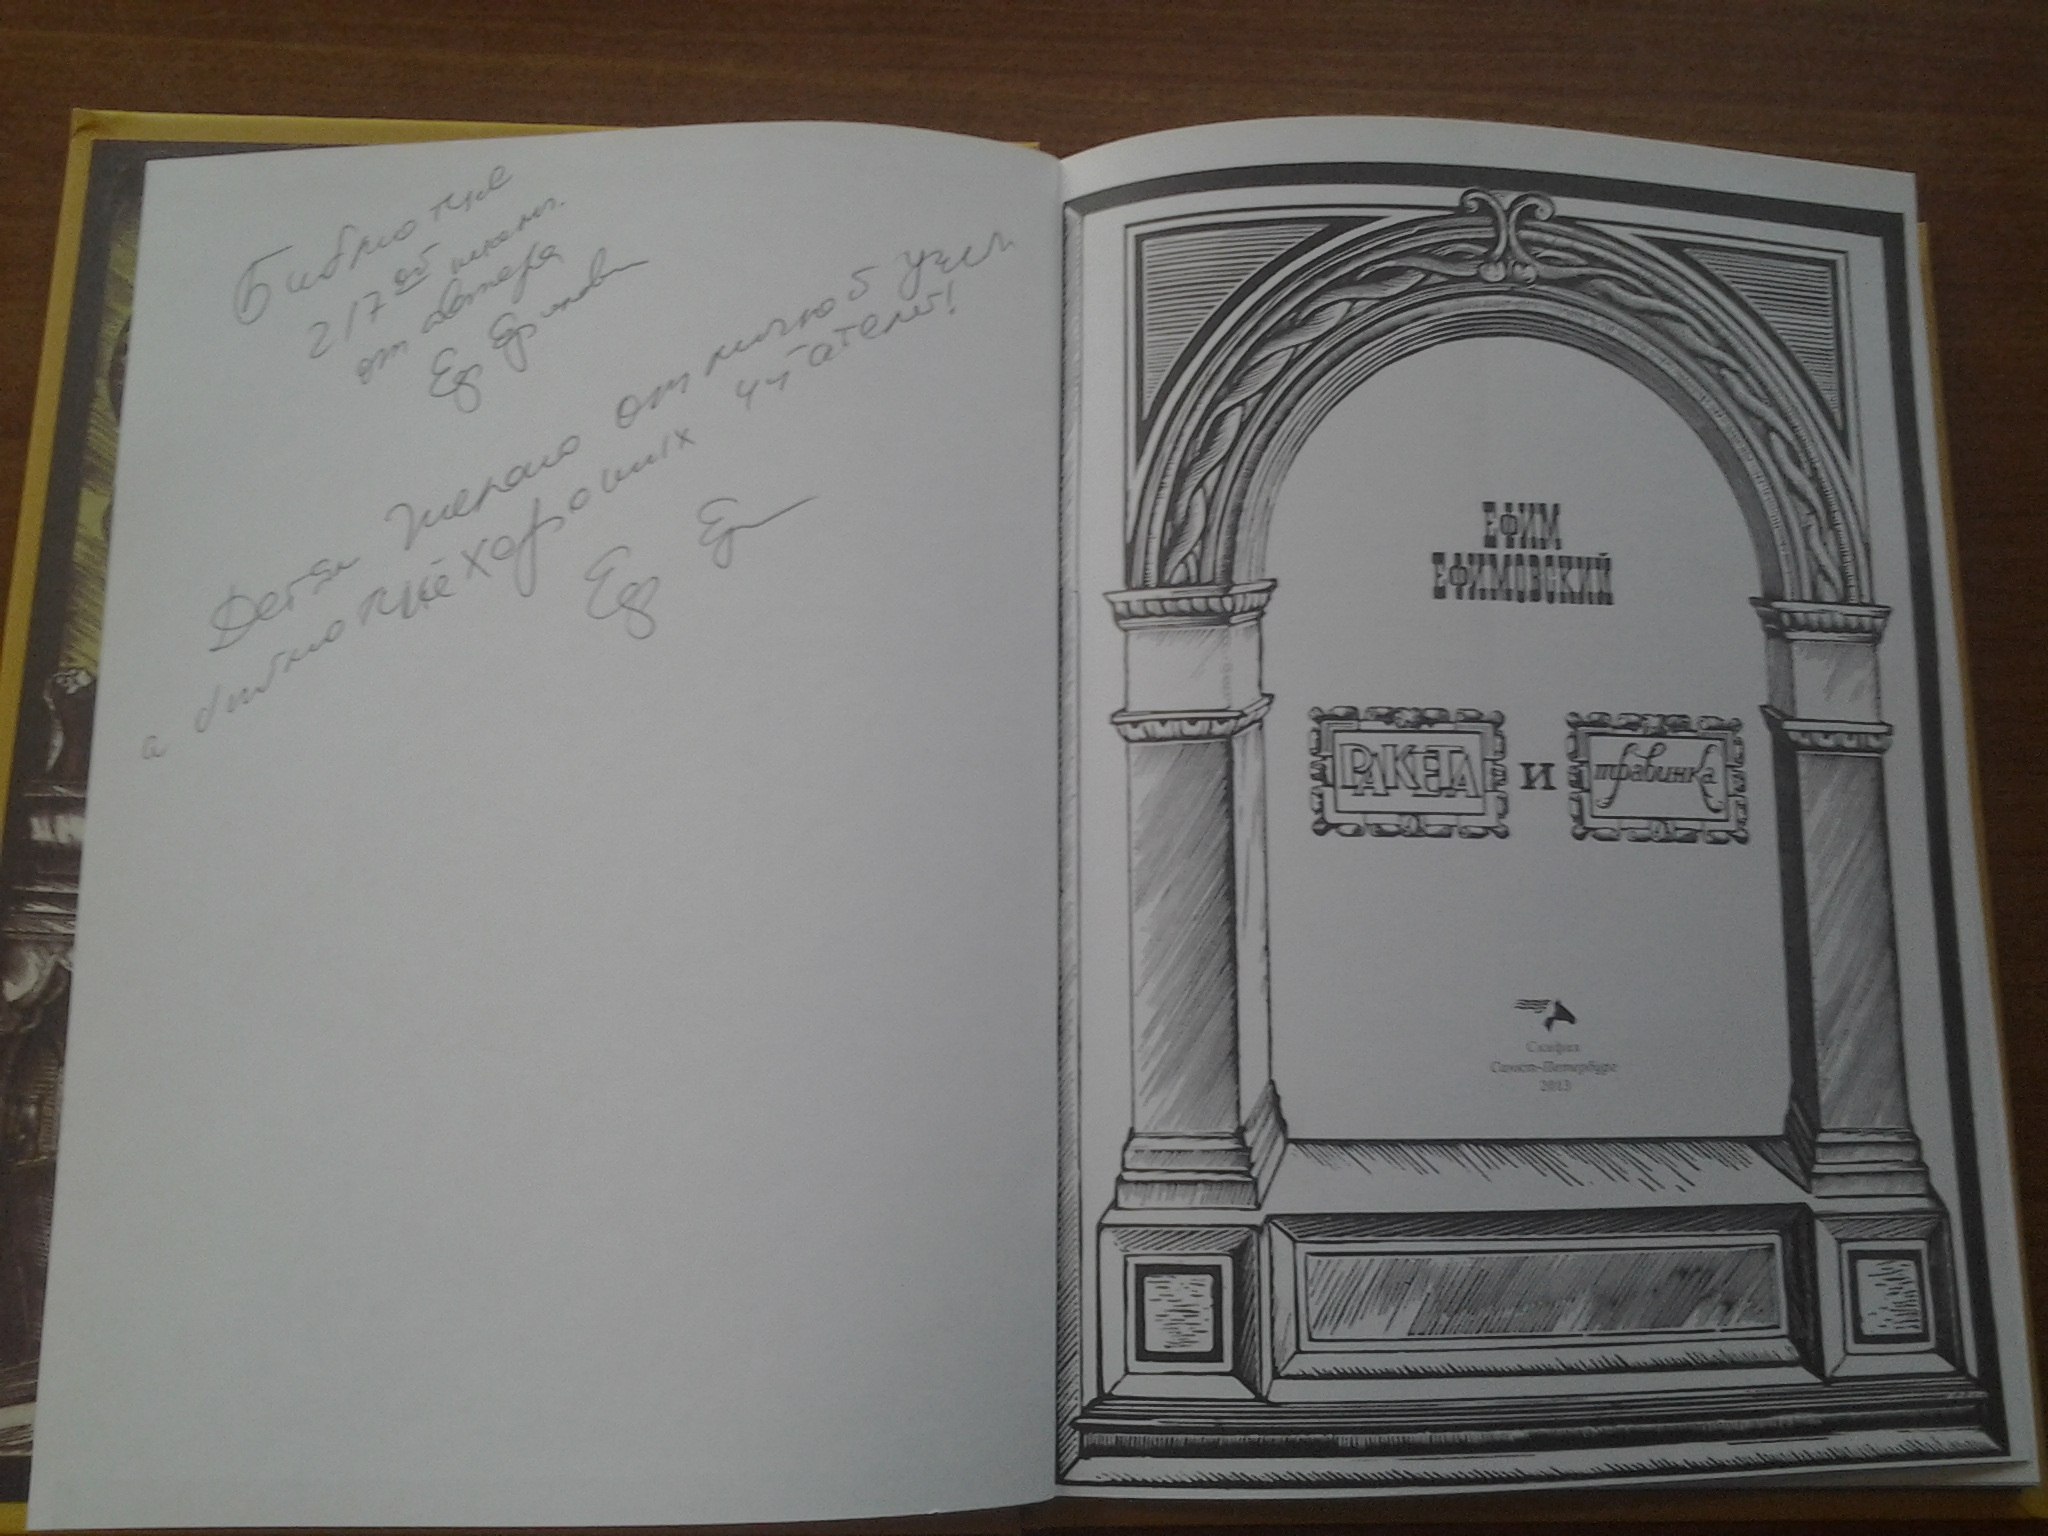 Библиотеке
217ой школы
от автора
Еф Ефимовский
Детям желаю отличной учёбы
а библиотеке хороших читателей!
Еф Еф
ЕФИМ
ЕФИМОВСКИЙ
РАКЕТА и травинка
Скифия
Санкт-Петербург
2013